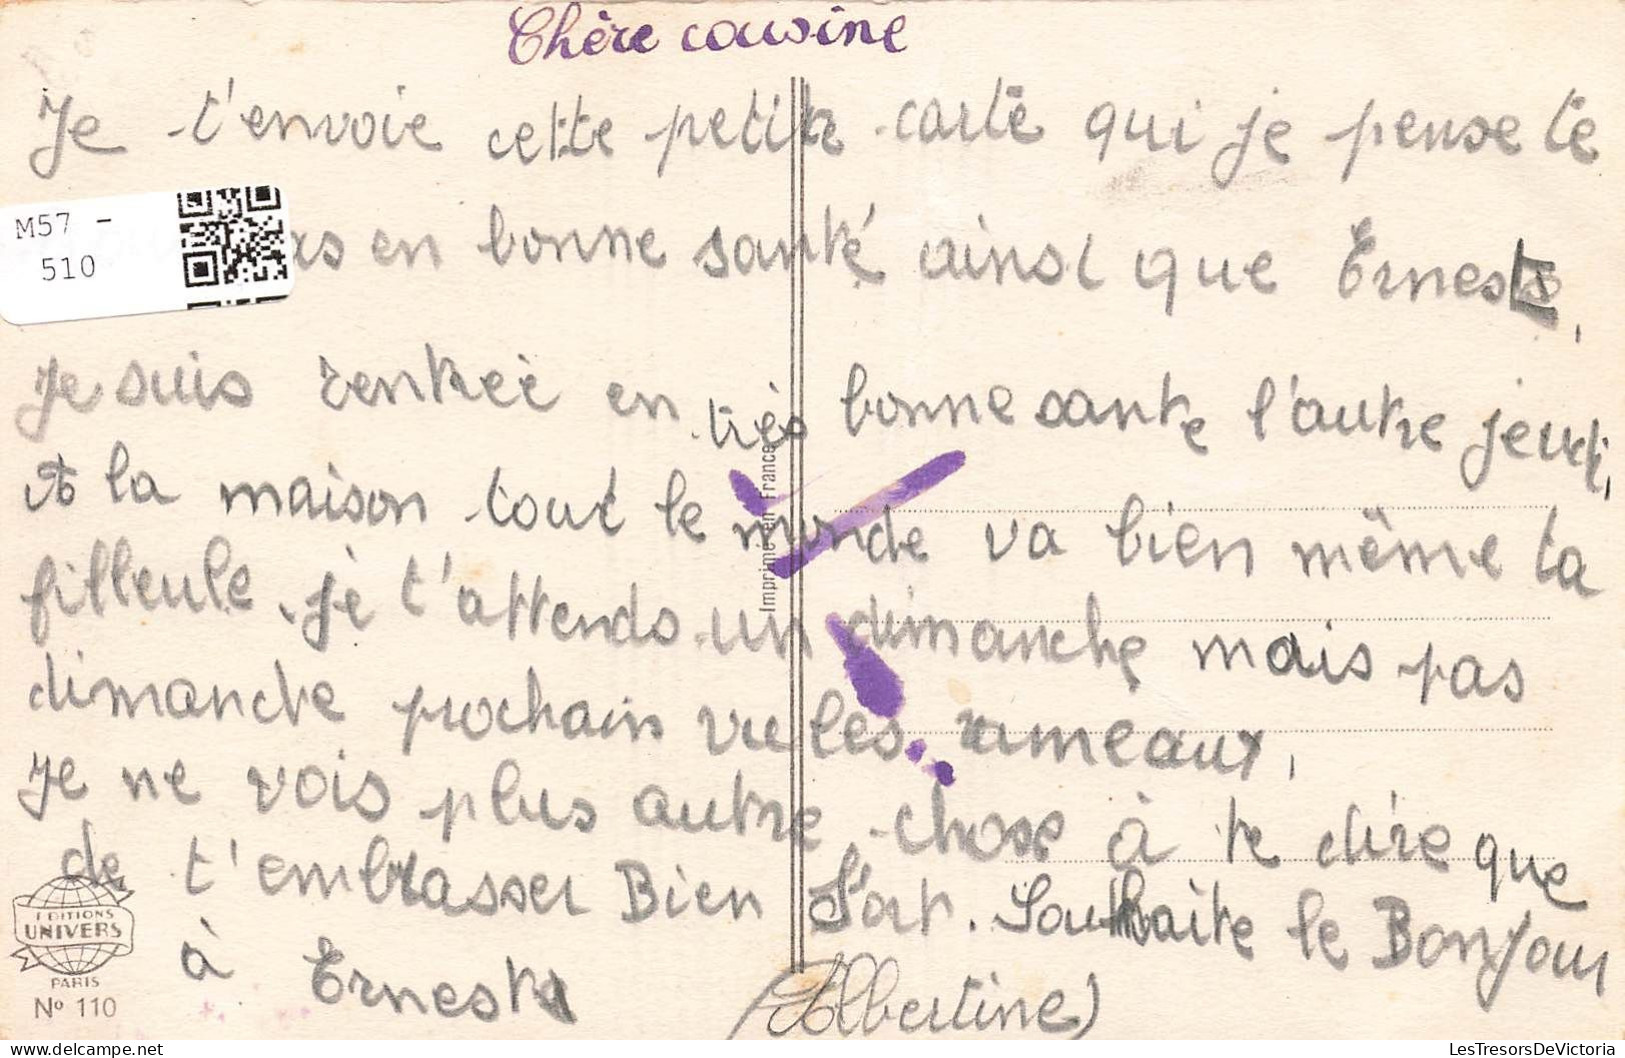 Chère cousine
Je t'envoie cette petite carte qui je pense te
as en bonne santé ainsi que Ernest,
Je suis rentreé en très bonne sante l'autre jeudi,
A la maison tout le monde va bien même ta
filleule, je t'attends un dimanche mais pas
dimanche prochain vu les rameaux,
Je ne vois plus autre chose à te dire que
de t'embrasser Bien Fort. Souhaite le Bonjour
à Ernest (Albertine)
M57 -
510
Imprimé en France
EDITIONS
UNIVERS
PARIS
Nº 110
LesTresorsDeVictoria